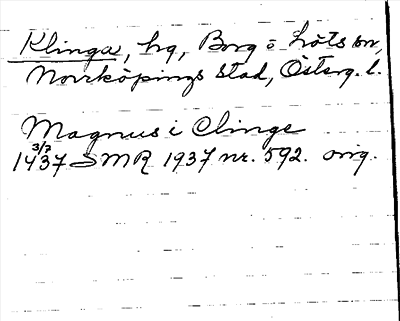 Klinga, hg, Borg o Löts sn,
Norrköpings stad, Österg. l.
Magnus i Clinge
3/7
1437 SMR 1937 nr. 592. orig.